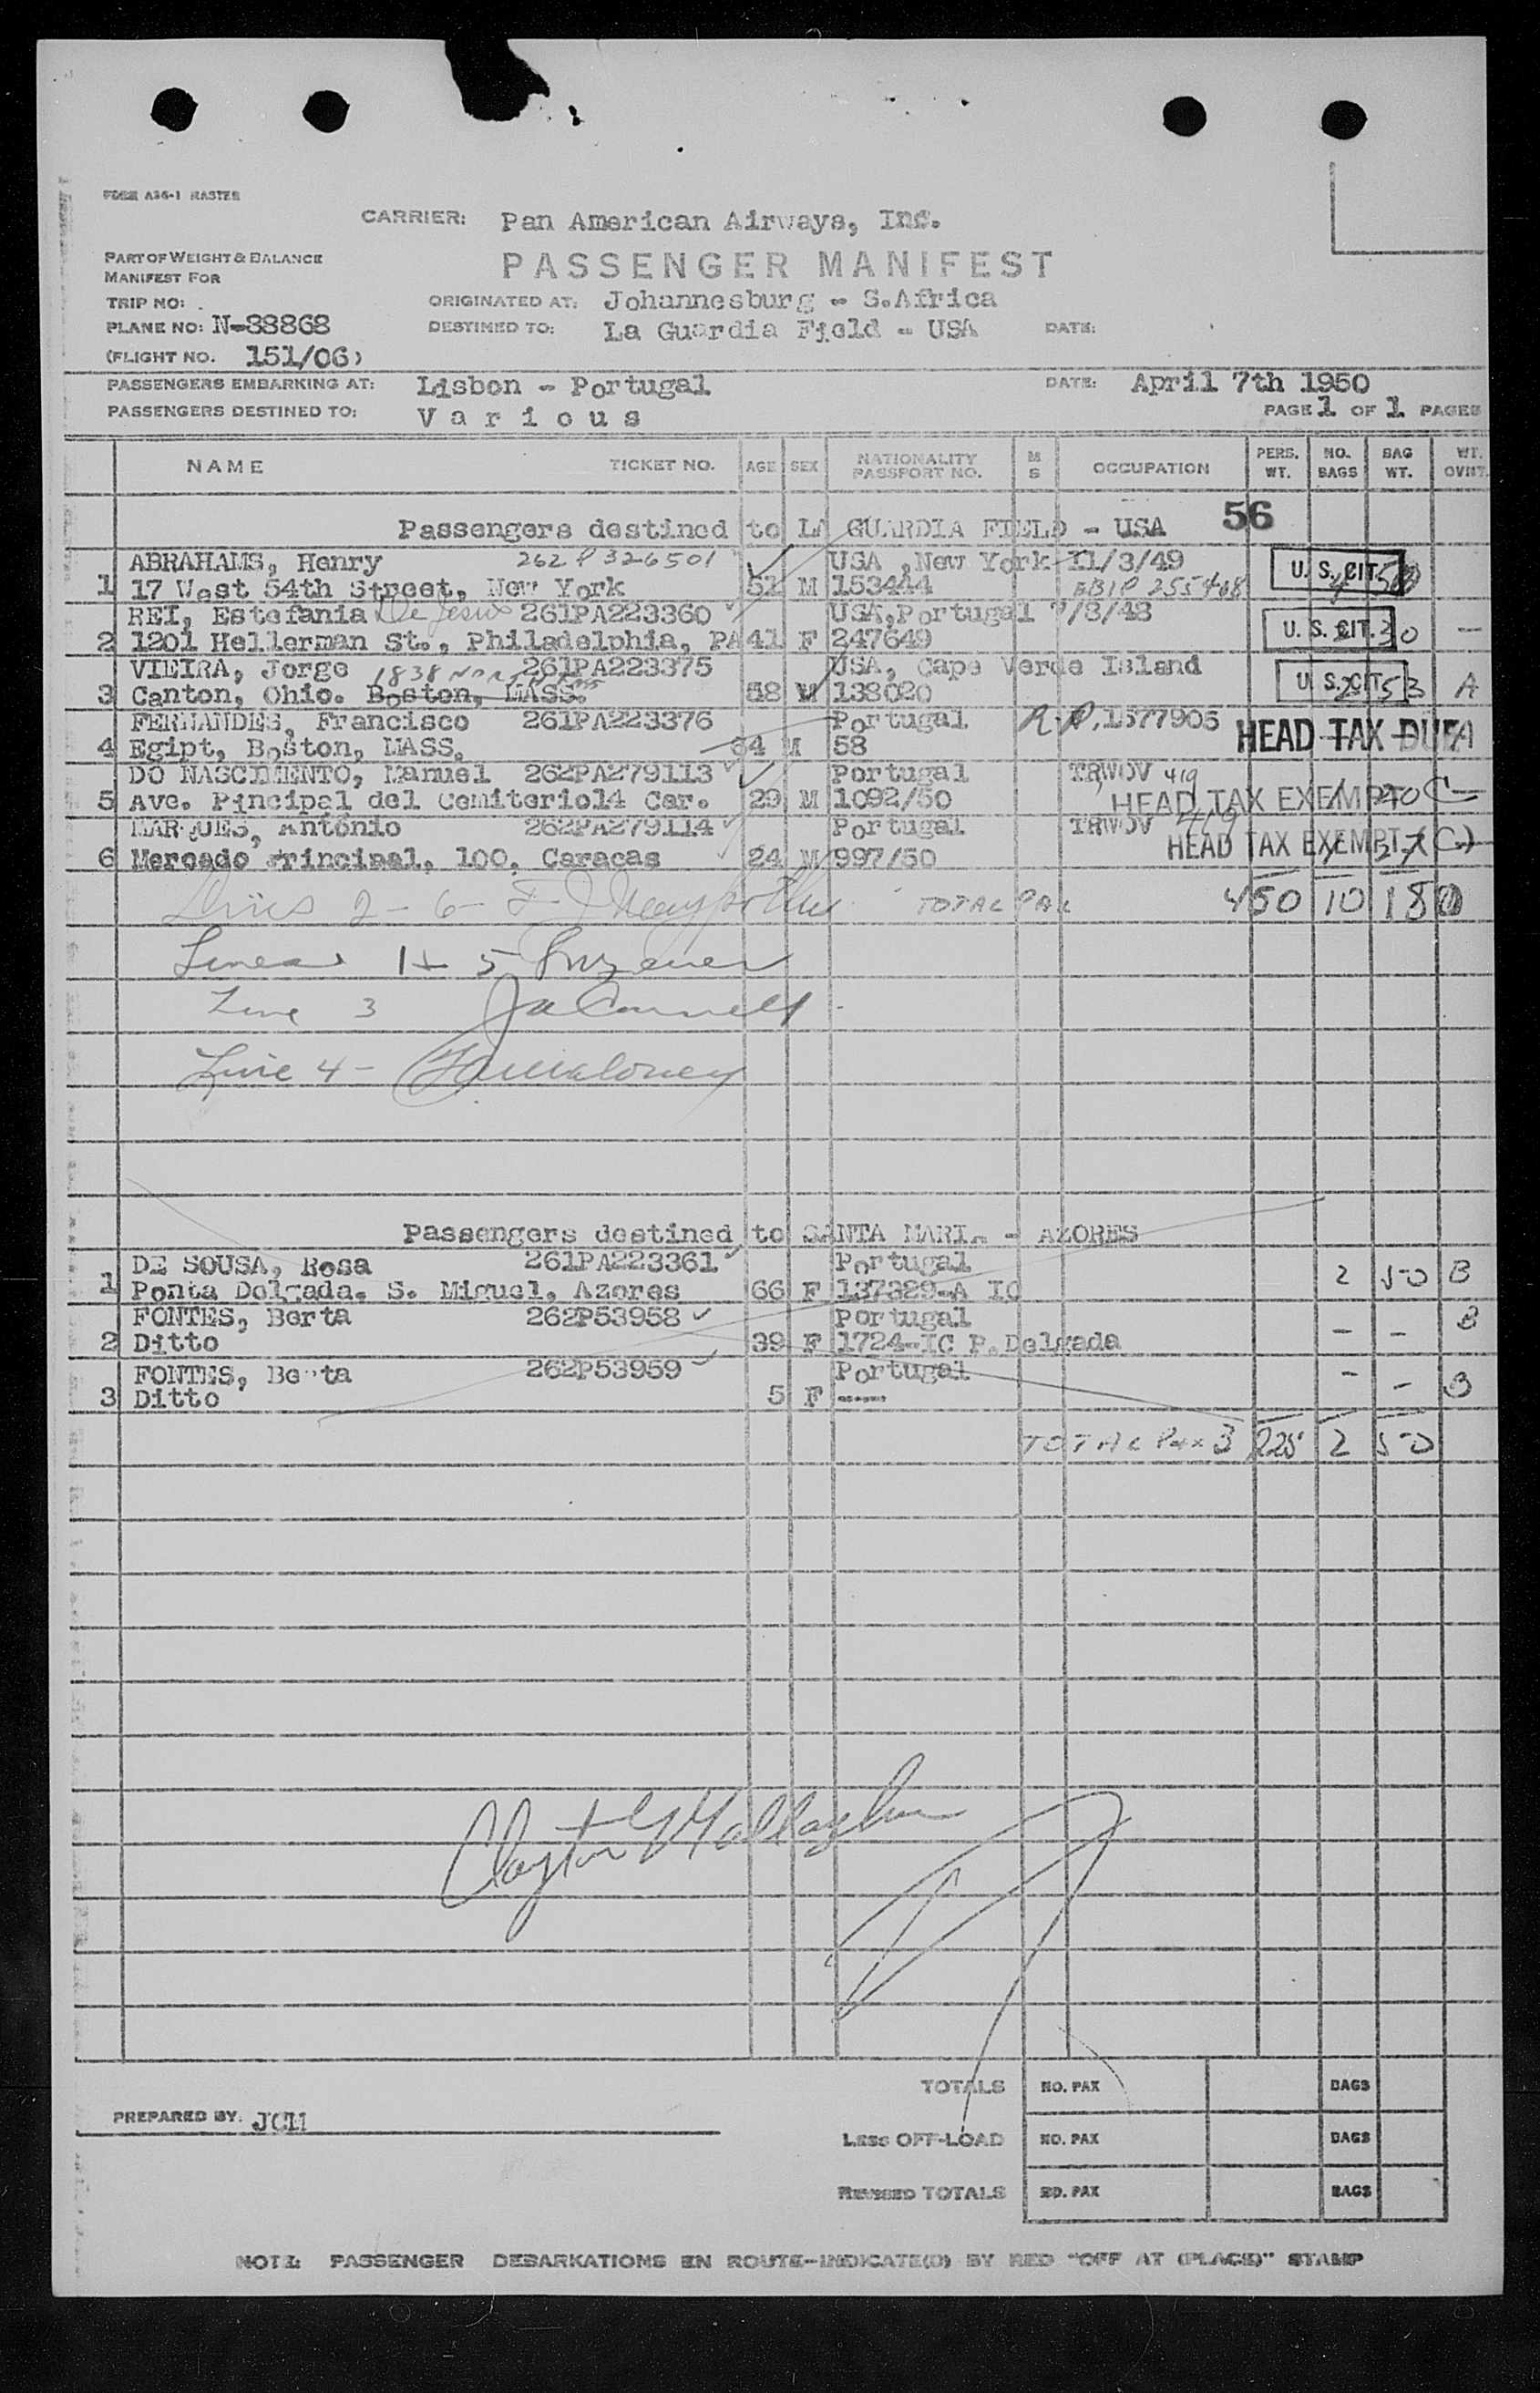 FORM A36-1 MASTER
CARRIER: Pan American Airways, Inc.
PART OF WEIGHT & BALANCE
MANIFEST FOR
PASSENGER MANIFEST
TRIP NO:
ORIGINATED AT: Johannesburg - S.Africa
PLANE NO: N-88868
DESTINED TO: La Guardia Field - USA DATE:
(FLIGHT NO. 151/06)
PASSENGERS EMBARKING AT: Lisbon - Portugal DATE: April 7th 1950
PASSENGERS DESTINED TO: V a r i o u s PAGE 1 OF 1 PAGES
NAME TICKET NO. AGE SEX NATIONALITY PASSPORT NO. M S OCCUPATION PERS. WT. NO. BAGS BAG WT. WT. OVWT.
Passengers destined to LA GUARDIA FIELD - USA 56
ABRAHAMS, Henry 262 P 326501 USA ,New York 11/3/49
1 17 West 54th Street, New York 51 M 153444 255468 U. S. CIT. 4
REI, Estefania De Jesus 261PA223360 USA,Portugal 7/8/48
2 1201 Hellerman St., Philadelphia, PA 41 F 247649 U. S. CIT. 30 —
VIEIRA, Jorge 1838 261PA223375 USA, Cape Verde Island
3 Canton, Ohio. Boston, MASS. 58 M 138020 U. S. CIT. 53 A
FERNANDES, Francisco 261PA223376 Portugal R.P. 1577905
4 Egipt, Boston, MASS. 64 M 58 HEAD TAX DUE A
DO NASCIMENTO, Manuel 262PA279113 Portugal TRWOV 419
5 Ave. Pincipal del Cemiterio14 Car. 29 M 1092/50 HEAD TAX EXEMPT 20 C
MARQUES, António 262PA279114 Portugal TRWOV 419
6 Mercado Principal, 100, Caracas 24 M 997/50 HEAD TAX EXEMPT 27 (C)
2 - 6 - TOTAL PAX 450 10 180
Lines 1 + 5
Line 3 Connell
Line 4 - Maloney
Passengers destined to SANTA MARIA - AZORES
DE SOUSA, Rosa 261PA223361 Portugal
1 Ponta Delgada, S. Miguel, Azores 66 F 137329-A IC 2 50 B
FONTES, Berta 262P53958 Portugal
2 Ditto 39 F 1724-IC P.Delgada — — B
FONTES, Berta 262P53959 Portugal
3 Ditto 5 F ----- - - B
TOTAL Pax 3 225 2 50
Clayton Gallagher
TOTALS NO. PAX BAGS
PREPARED BY: JCM
LESS OFF-LOAD NO. PAX BAGS
REVISED TOTALS NO. PAX BAGS
NOTE: PASSENGER DEBARKATIONS EN ROUTE-INDICATE(D) BY RED "OFF AT (PLACE)" STAMP